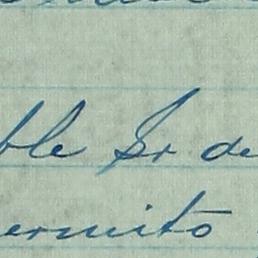 ble Sr de
ermito